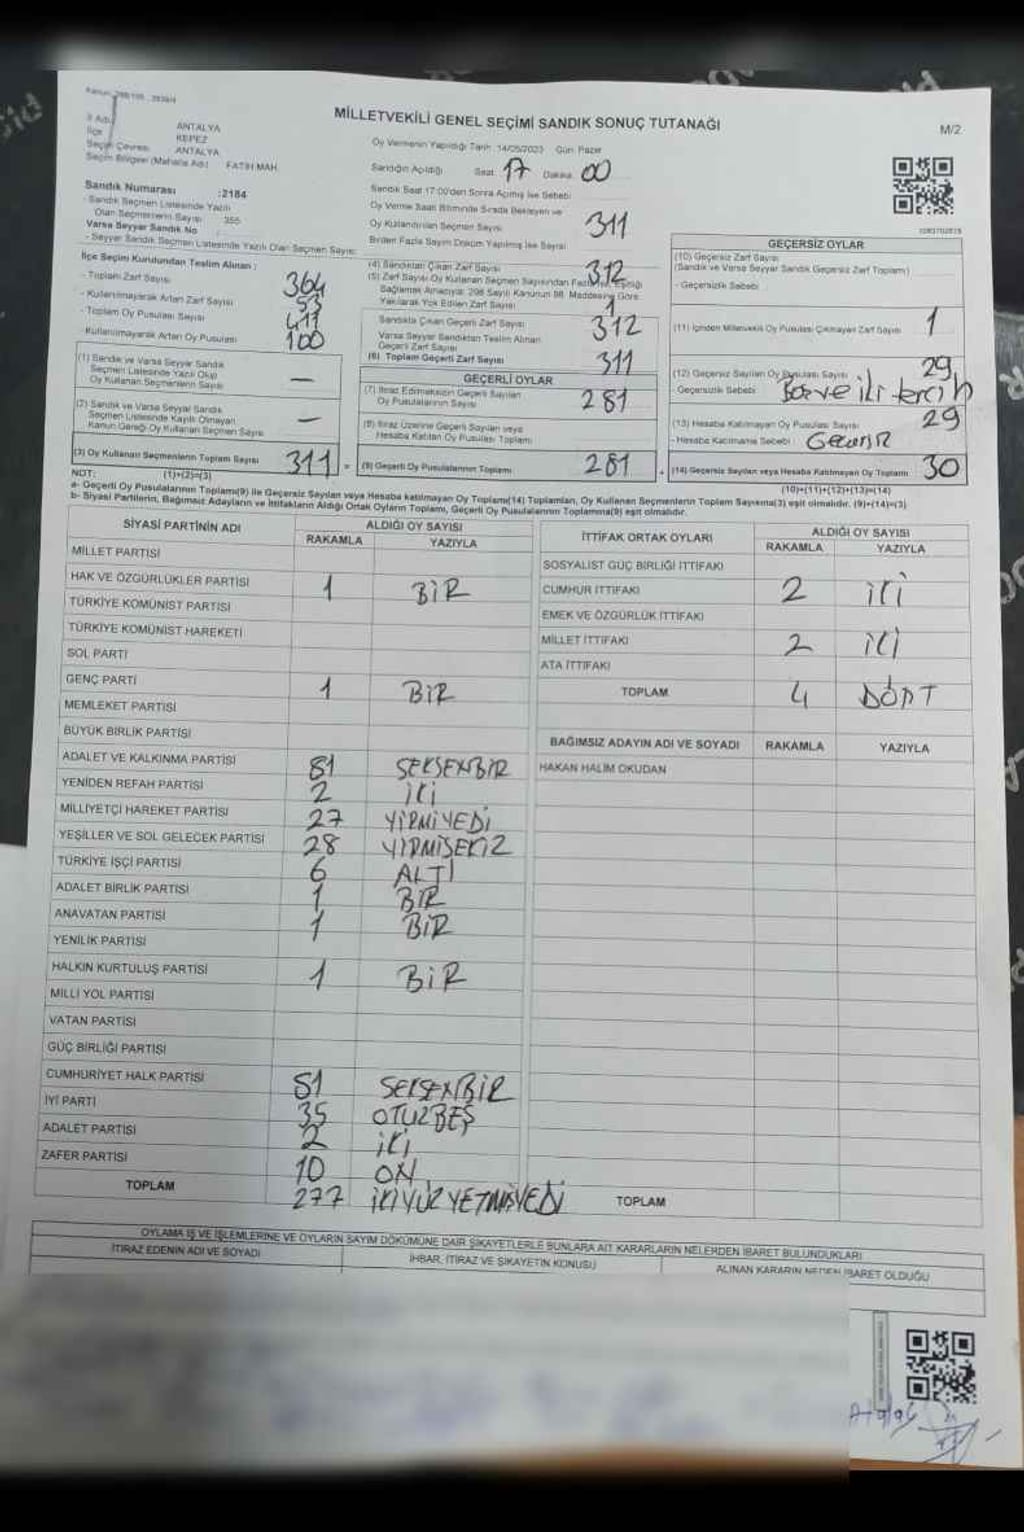 MİLLETVEKİLİ GENEL SEÇİMİ SANDIK SONUÇ TUTANAĞI
M/2
İl Adı ANTALYA
İlçe KEPEZ
Seçim Çevresi ANTALYA
Seçim Bölgesi (Mahalle Adı) FATİH MAH.
Oy Vermenin Yapıldığı Tarih :14/05/2023 Gün: Pazar
Sandığın Açıldığı Saat: 17 Dakika: 00
Sandık Saat 17:00'den Sonra Açılmış İse Sebebi
Oy Verme Saati Bitiminde Sırada Bekleyen ve
Oy Kullandırılan Seçmen Sayısı 311
Birden Fazla Sayım Döküm Yapılmış İse Sayısı
Sandık Numarası :2184
- Sandık Seçmen Listesinde Yazılı
Olan Seçmenlerin Sayısı : 355
Varsa Seyyar Sandık No :
- Seyyar Sandık Seçmen Listesinde Yazılı Olan Seçmen Sayısı:
İlçe Seçim Kurulundan Teslim Alınan :
- Toplam Zarf Sayısı 364
- Kullanılmayarak Artan Zarf Sayısı 53
- Toplam Oy Pusulası Sayısı 411
- Kullanılmayarak Artan Oy Pusulası 100
(1) Sandık ve Varsa Seyyar Sandık
Seçmen Listesinde Yazılı Olup
Oy Kullanan Seçmenlerin Sayısı —
(2) Sandık ve Varsa Seyyar Sandık
Seçmen Listesinde Kayıtlı Olmayan
Kanun Gereği Oy Kullanan Seçmen Sayısı —
(3) Oy Kullanan Seçmenlerin Toplam Sayısı 311 =
(1)+(2)=(3)
(4) Sandıktan Çıkan Zarf Sayısı 312
(5) Zarf Sayısı Oy Kullanan Seçmen Sayısından Fazla İse, Eşitliği
Sağlamak Amacıyla; 298 Sayılı Kanunun 98. Maddesine Göre
Yakılarak Yok Edilen Zarf Sayısı 1
Sandıkta Çıkan Geçerli Zarf Sayısı 312
Varsa Seyyar Sandıktan Teslim Alınan
Geçerli Zarf Sayısı
(6) Toplam Geçerli Zarf Sayısı 311
GEÇERLİ OYLAR
(7) İtiraz Edilmeksizin Geçerli Sayılan
Oy Pusulalarının Sayısı 281
(8) İtiraz Üzerine Geçerli Sayılan veya
Hesaba Katılan Oy Pusulası Toplamı
(9) Geçerli Oy Pusulalarının Toplamı 281 +
GEÇERSİZ OYLAR
(10) Geçersiz Zarf Sayısı
(Sandık ve Varsa Seyyar Sandık Geçersiz Zarf Toplamı)
- Geçersizlik Sebebi
(11) İçinden Milletvekili Oy Pusulası Çıkmayan Zarf Sayısı 1
(12) Geçersiz Sayılan Oy Pusulası Sayısı 29
Geçersizlik Sebebi Boş ve iki tercih
(13) Hesaba Katılmayan Oy Pusulası Sayısı 29
- Hesaba Katılmama Sebebi Geçersiz
(14) Geçersiz Sayılan veya Hesaba Katılmayan Oy Toplamı 30
(10)+(11)+(12)+(13)=(14)
NOT:
a- Geçerli Oy Pusulalarının Toplamı(9) ile Geçersiz Sayılan veya Hesaba katılmayan Oy Toplamı(14) Toplamları, Oy Kullanan Seçmenlerin Toplam Sayısına(3) eşit olmalıdır. (9)+(14)=(3)
b- Siyasi Partilerin, Bağımsız Adayların ve İttifakların Aldığı Ortak Oyların Toplamı, Geçerli Oy Pusulalarının Toplamına(9) eşit olmalıdır.
SİYASİ PARTİNİN ADI ALDIĞI OY SAYISI
RAKAMLA YAZIYLA
MİLLET PARTİSİ
HAK VE ÖZGÜRLÜKLER PARTİSİ 1 BİR
TÜRKİYE KOMÜNİST PARTİSİ
TÜRKİYE KOMÜNİST HAREKETİ
SOL PARTİ
GENÇ PARTİ 1 BİR
MEMLEKET PARTİSİ
BÜYÜK BİRLİK PARTİSİ
ADALET VE KALKINMA PARTİSİ 81 SEKSENBİR
YENİDEN REFAH PARTİSİ 2 İKİ
MİLLİYETÇİ HAREKET PARTİSİ 27 YİRMİYEDİ
YEŞİLLER VE SOL GELECEK PARTİSİ 28 YİRMİSEKİZ
TÜRKİYE İŞÇİ PARTİSİ 6 ALTI
ADALET BİRLİK PARTİSİ 1 BİR
ANAVATAN PARTİSİ 1 BİR
YENİLİK PARTİSİ
HALKIN KURTULUŞ PARTİSİ 1 BİR
MİLLİ YOL PARTİSİ
VATAN PARTİSİ
GÜÇ BİRLİĞİ PARTİSİ
CUMHURİYET HALK PARTİSİ 81 SEKSENBİR
İYİ PARTİ 35 OTUZBEŞ
ADALET PARTİSİ 2 İKİ
ZAFER PARTİSİ 10 ON
TOPLAM 277 İKİYÜZYETMİŞYEDİ
İTTİFAK ORTAK OYLARI ALDIĞI OY SAYISI
RAKAMLA YAZIYLA
SOSYALİST GÜÇ BİRLİĞİ İTTİFAKI
CUMHUR İTTİFAKI 2 İKİ
EMEK VE ÖZGÜRLÜK İTTİFAKI
MİLLET İTTİFAKI 2 İKİ
ATA İTTİFAKI
TOPLAM 4 DÖRT
BAĞIMSIZ ADAYIN ADI VE SOYADI RAKAMLA YAZIYLA
HAKAN HALİM OKUDAN
TOPLAM
OYLAMA İŞ VE İŞLEMLERİNE VE OYLARIN SAYIM DÖKÜMÜNE DAİR ŞİKAYETLERLE BUNLARA AİT KARARLARIN NELERDEN İBARET BULUNDUKLARI
İTİRAZ EDENİN ADI VE SOYADI İHBAR, İTİRAZ VE ŞİKAYETİN KONUSU ALINAN KARARIN NEDEN İBARET OLDUĞU